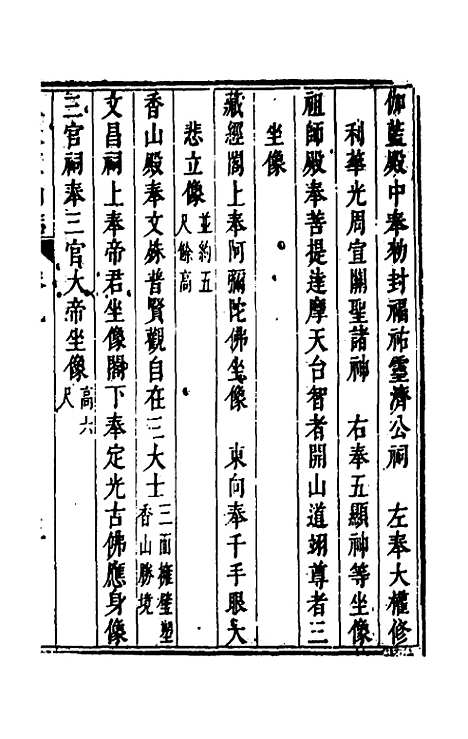 伽藍殿中奉勅封福祐靈濟公祠　左奉大權修
利華光周宣關聖諸神　右奉五顯神等坐像
祖師殿奉菩提達摩天台智者開山道翊尊者三
坐像
藏經閣上奉阿彌陀佛坐像　東向奉千手眼大
悲立像並約五尺餘高
香山殿奉文殊普賢觀自在三大士三面擁壁塑香山勝境
文昌祠上奉帝君坐像閣下奉定光古佛應身像
三官祠奉三官大帝坐像高六尺